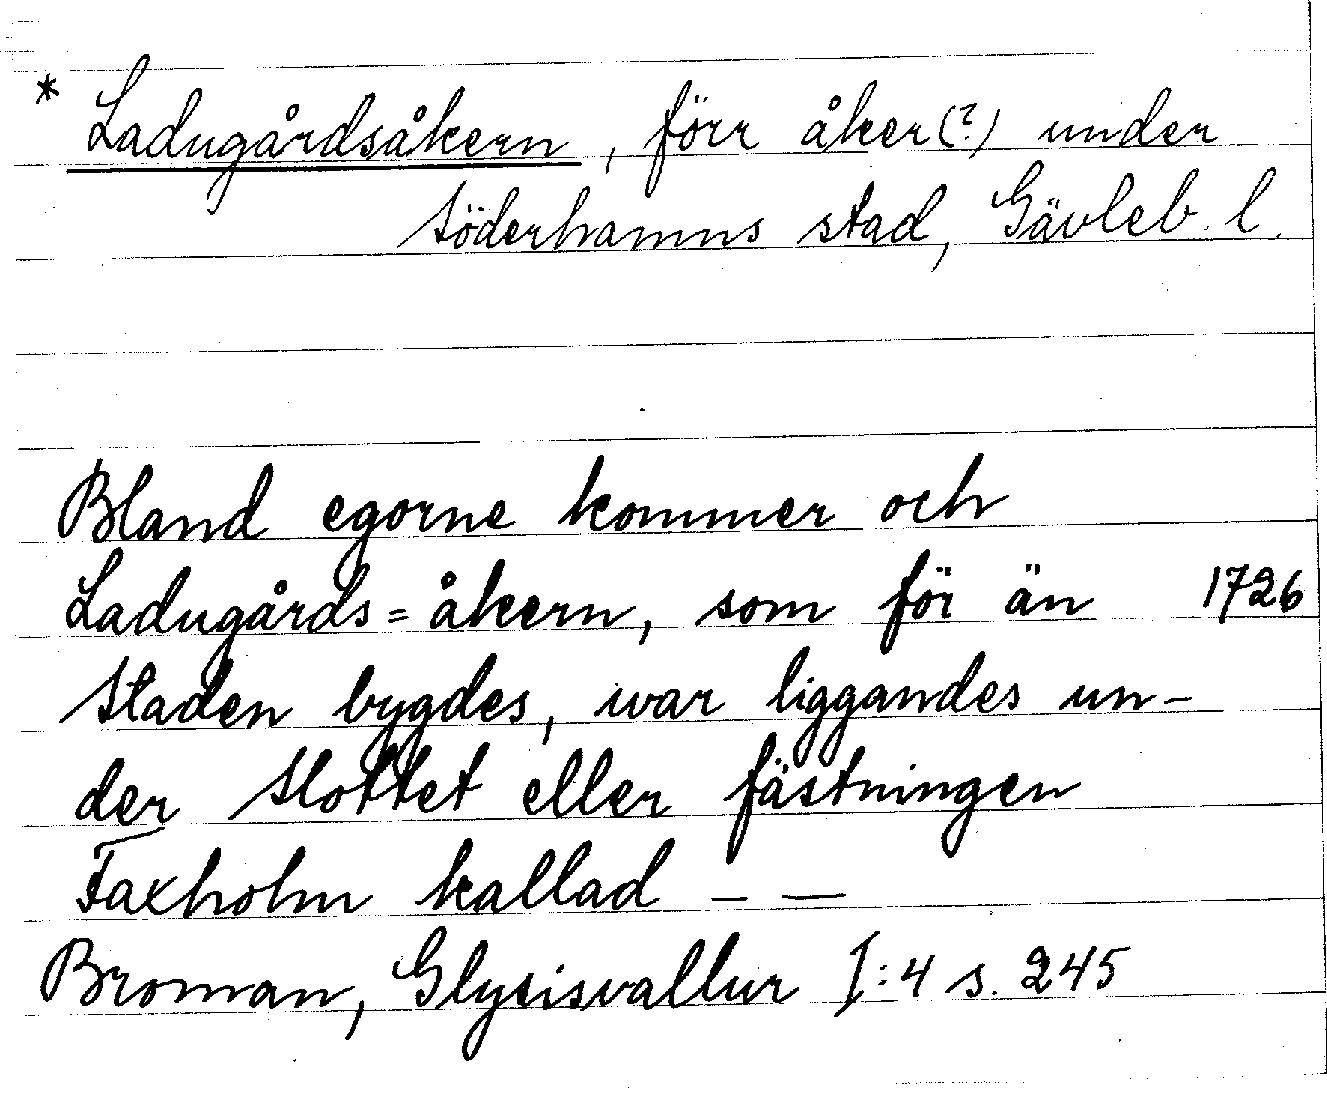 * Ladugårdsåkern, förr åker(?) under
Söderhamns stad, Gävleb. l.
Bland egorne kommer och
Ladugårds=åkern, som för än 1726
Staden bygdes, war liggandes un-
der Slottet eller fästningen
Faxholm kallad – —
Broman, Glysisvallur I:4 s. 245